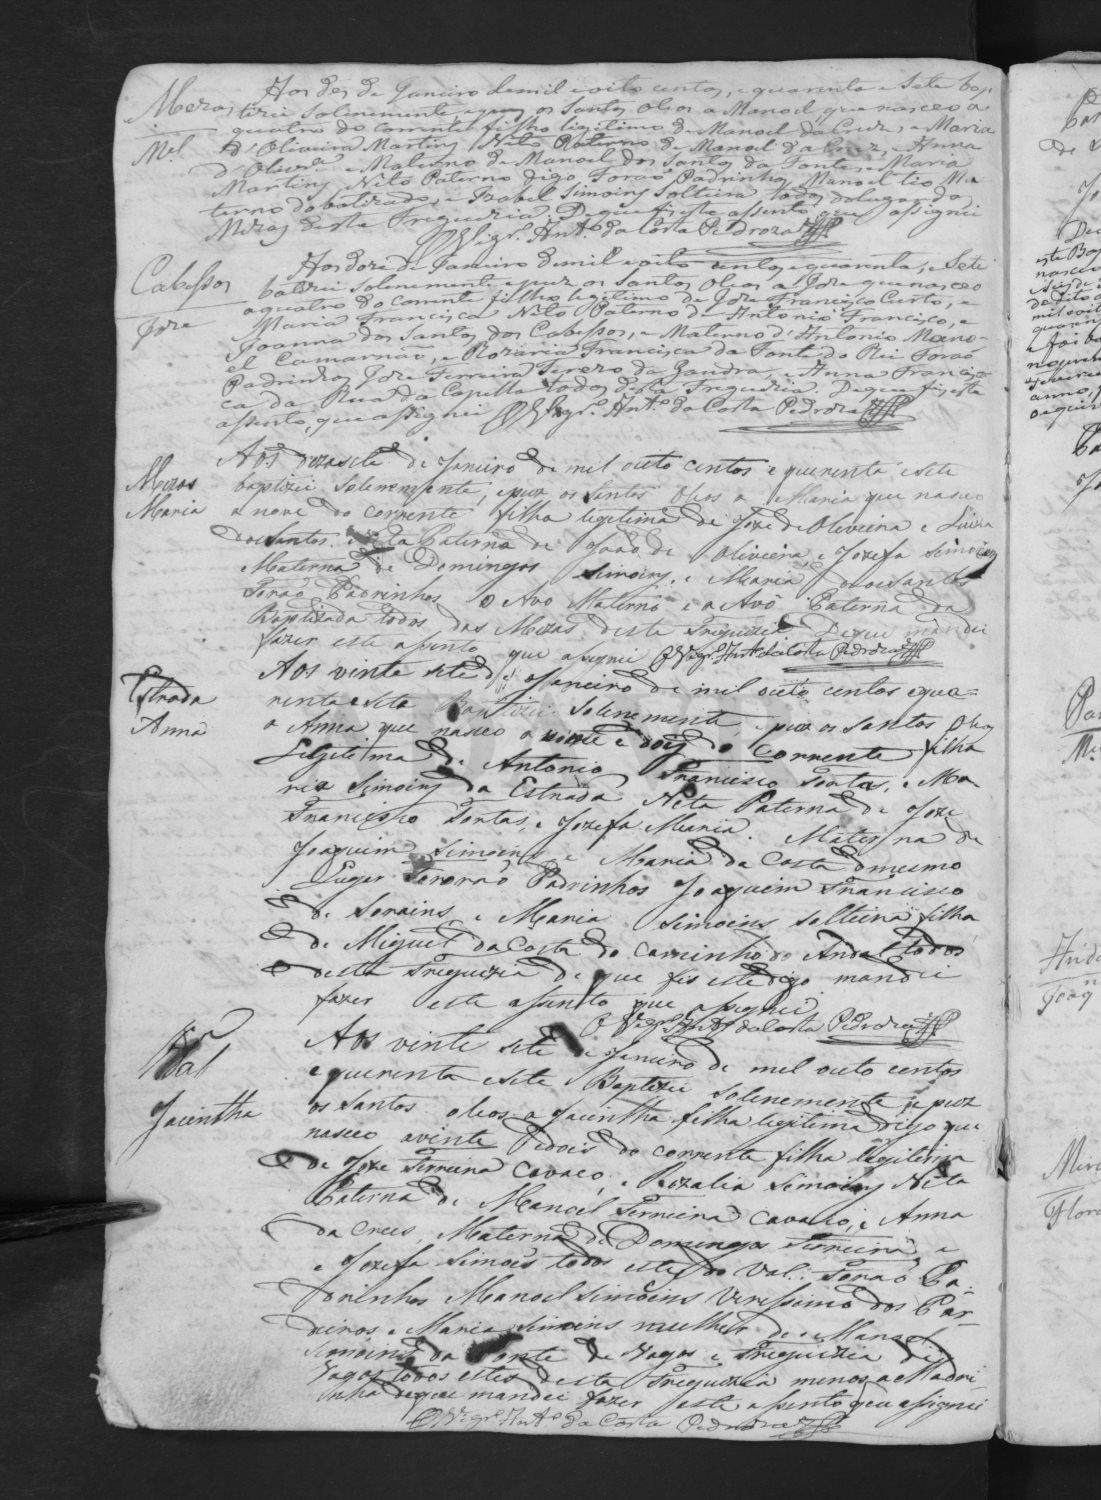 Mezas
M.el
Aos des de Janeiro de mil e oito centos, e quarenta e Sete bap-
tizei solenemente, e puz os Santos Oleos a Manoel, que nasceo a
quatro do corrente filho legitimo de Manoel da Cruz, e Maria
d'Oliveira Martins Neto Paterno de Manoel da Cruz, e Anna
d'Oliv.ra e Materno de Manoel dos Santos da Fonte, e Maria
Martins Neto Paterno digo forão Padrinhos Manoel tio Ma-
terno do batizado, e Izabel Simoins Solteira todos do lugar das
Mezas desta Freguezia. De que fis este assento, que assignei
O Vigr.o Ant.o da Costa Pedroza
Cabessos
Joze
Aos doze de Janeiro de mil e oito centos, e quarenta, e Sete
batizei solenemente, e puz os Santos Oleos a Joze que nasceo
a quatro do corrente filho legitimo de Joze Francisco Curto, e
Maria Francisca Neto Paterno de Antonio Francisco, e
Joanna dos Santos dos Cabessos, e Materno d'Antonio Mano-
el Camarnão, e Rozaria Francisca da Fonte do Rei forão
Padrinhos Joze Ferreira Serezo da Gandra, e Anna Francis-
ca da Rua da Capella todos desta Freguezia. De que fis este
assento, que assignei O Vigr.o Ant.o da Costa Pedroza
Mezas
Maria
Aos dezasete de Janeiro de mil outo centos e quarenta e sete
baptizei solenemente, e puz os Santos Oleos a Maria que nasceo
a nove do corrente filha legitima de Joze de Oliveira e Luiza
dos Santos. Neta Paterna de João de Oliveira, e Jozefa Simoins
Materna de Domingos Simoins, e Maria dos Santos
Forão Padrinhos o Avo Materno e a Avó Paterna da
Baptizada todos das Mezas desta Freguezia De que mandei
fazer este assento que assignei O Vigr.o Ant.o da Costa Pedroza
Estrada
Anna
Aos vinte sete de Janeiro de mil outo centos e qua=
renta e sete Baptizei solenemente, e puz os santos Oleos
a Anna que nasceo a vinte e dois do corrente filha
Legitima de Antonio Francisco Tortas, e Ma
ria Simoins da Estrada Neta Paterna de Joze
Francisco Tortas, e Jozefa Maria. Materna de
Joaquim Simoins e Maria da Costa do mesmo
Lugar Forão Padrinhos Joaquim Francisco
de Sorains, e Maria Simoins solteira filha
de Miguel da Costa do Carrinho do Andal todos
desta Freguezia de que fis este digo mandei
fazer este assento que assignei
O Vigr.o Ant.o da Costa Pedroza
Val
Jacintha
Aos vinte sete de Janeiro de mil outo centos
e quarenta e sete Baptizei solenemente e puz
os santos oleos a Jacintha filha legitima digo que
nasceo a vinte e dois do corrente filha legitima
de Joze Ferreira Cavaco, e Rozalia Simoins Neta
Paterna de Manoel Ferreira Cavaco, e Anna
da Crus, Materna de Domingos Ferreira e
e Jozefa Simois todos estes do Val. Forão Pa-
drinhos Manoel Simoins Verissimo dos Par-
deiros e Maria Simoins mulher de Manoel
Simoins da Fonte de Vagos e Freguezia de
Vagos todos estes desta Freguezia menos a Madri-
nha de que mandei fazer este assento que assignei
O Vigr.o Ant.o da Costa Pedroza